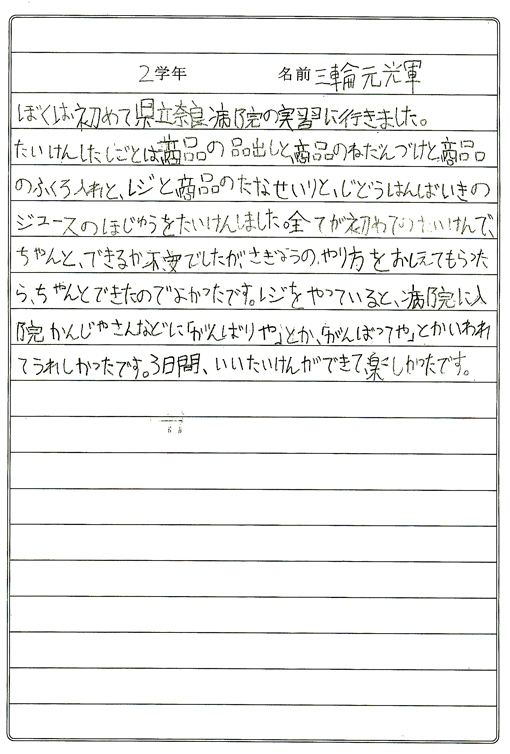 2学年 名前 三輪元輝
ぼくは初めて県立奈良病院の実習に行きました。
たいけんしたしごとは商品の品出しと、商品のねだんづけと、商品
のふくろ入れと、レジと商品のたなせいりと、じどうはんばいきの
ジュースのほじゅうをたいけんしました。全てが初めてのたいけんで、
ちゃんと、できるか不安でしたが、さぎょうの、やり方をおしえてもらった
ら、ちゃんとできたのでよかったです。レジをやっていると、病院に入
院かんじゃさんなどに「がんばりや」とか、「がんばってや」とかいわれ
てうれしかったです。3日間、いいたいけんができて楽しかったです。